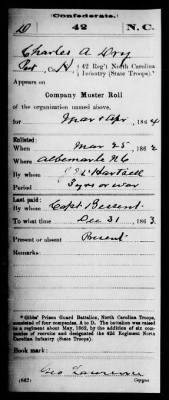 Confederate.
D 42 N.C.
Charles A Dry
Pvt, Co. H, 42 Reg't North Carolina
Infantry (State Troops).*
Appears on
Company Muster Roll
of the organization named above,
for Mar & Apr, 1864
Enlisted:
When Mar 25, 1862
Where Albemarle N.C.
By whom Hartsell
Period 3 yrs or war
Last paid:
By whom Capt. Bessent
To what time Dec 31, 1863.
Present or absent Present
Remarks:
*Gibbs' Prison Guard Battalion, North Carolina Troops,
consisted of four companies, A to D. The battalion was raised
to a regiment about May, 1862, by the addition of six com-
panies of recruits and designated the 42d Regiment North
Carolina Infantry (State Troops).
Book mark:
Geo Lawrence
(642) Copyist.